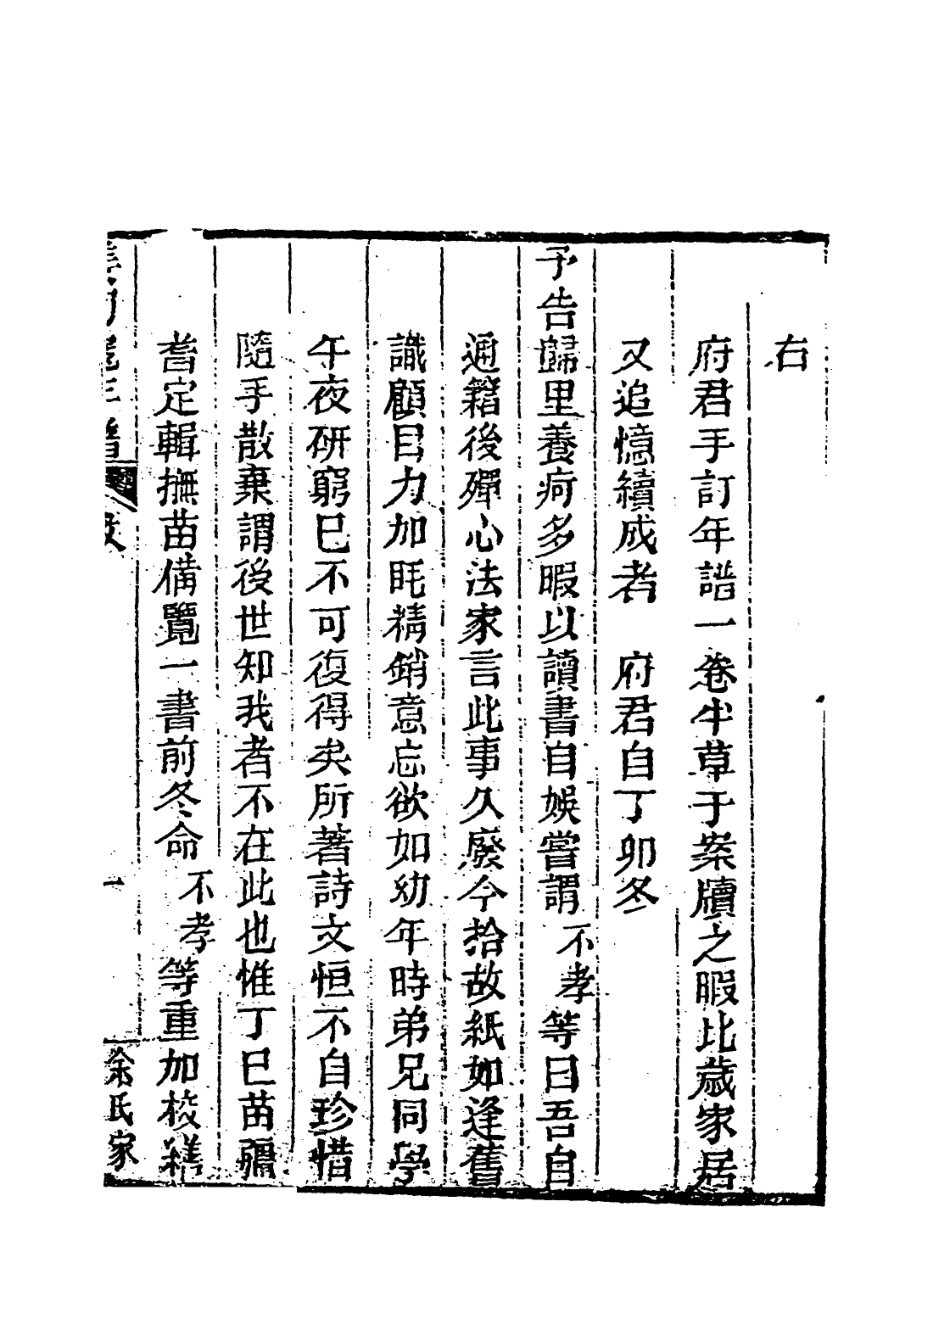 右
府君手訂年譜一卷半草于案牘之暇比歲家居
又追憶續成者　府君自丁卯冬
予告歸里養疴多暇以讀書自娛嘗謂不孝等曰吾自
通籍後殫心法家言此事久廢今拾故紙如逢舊
識顧目力加眊精銷意忘欲如幼年時弟兄同學
午夜研窮已不可復得矣所著詩文恒不自珍惜
隨手散棄謂後世知我者不在此也惟丁巳苗疆
耆定輯撫苗備覽一書前冬命不孝等重加校繕
年譜
跋
一
余氏家